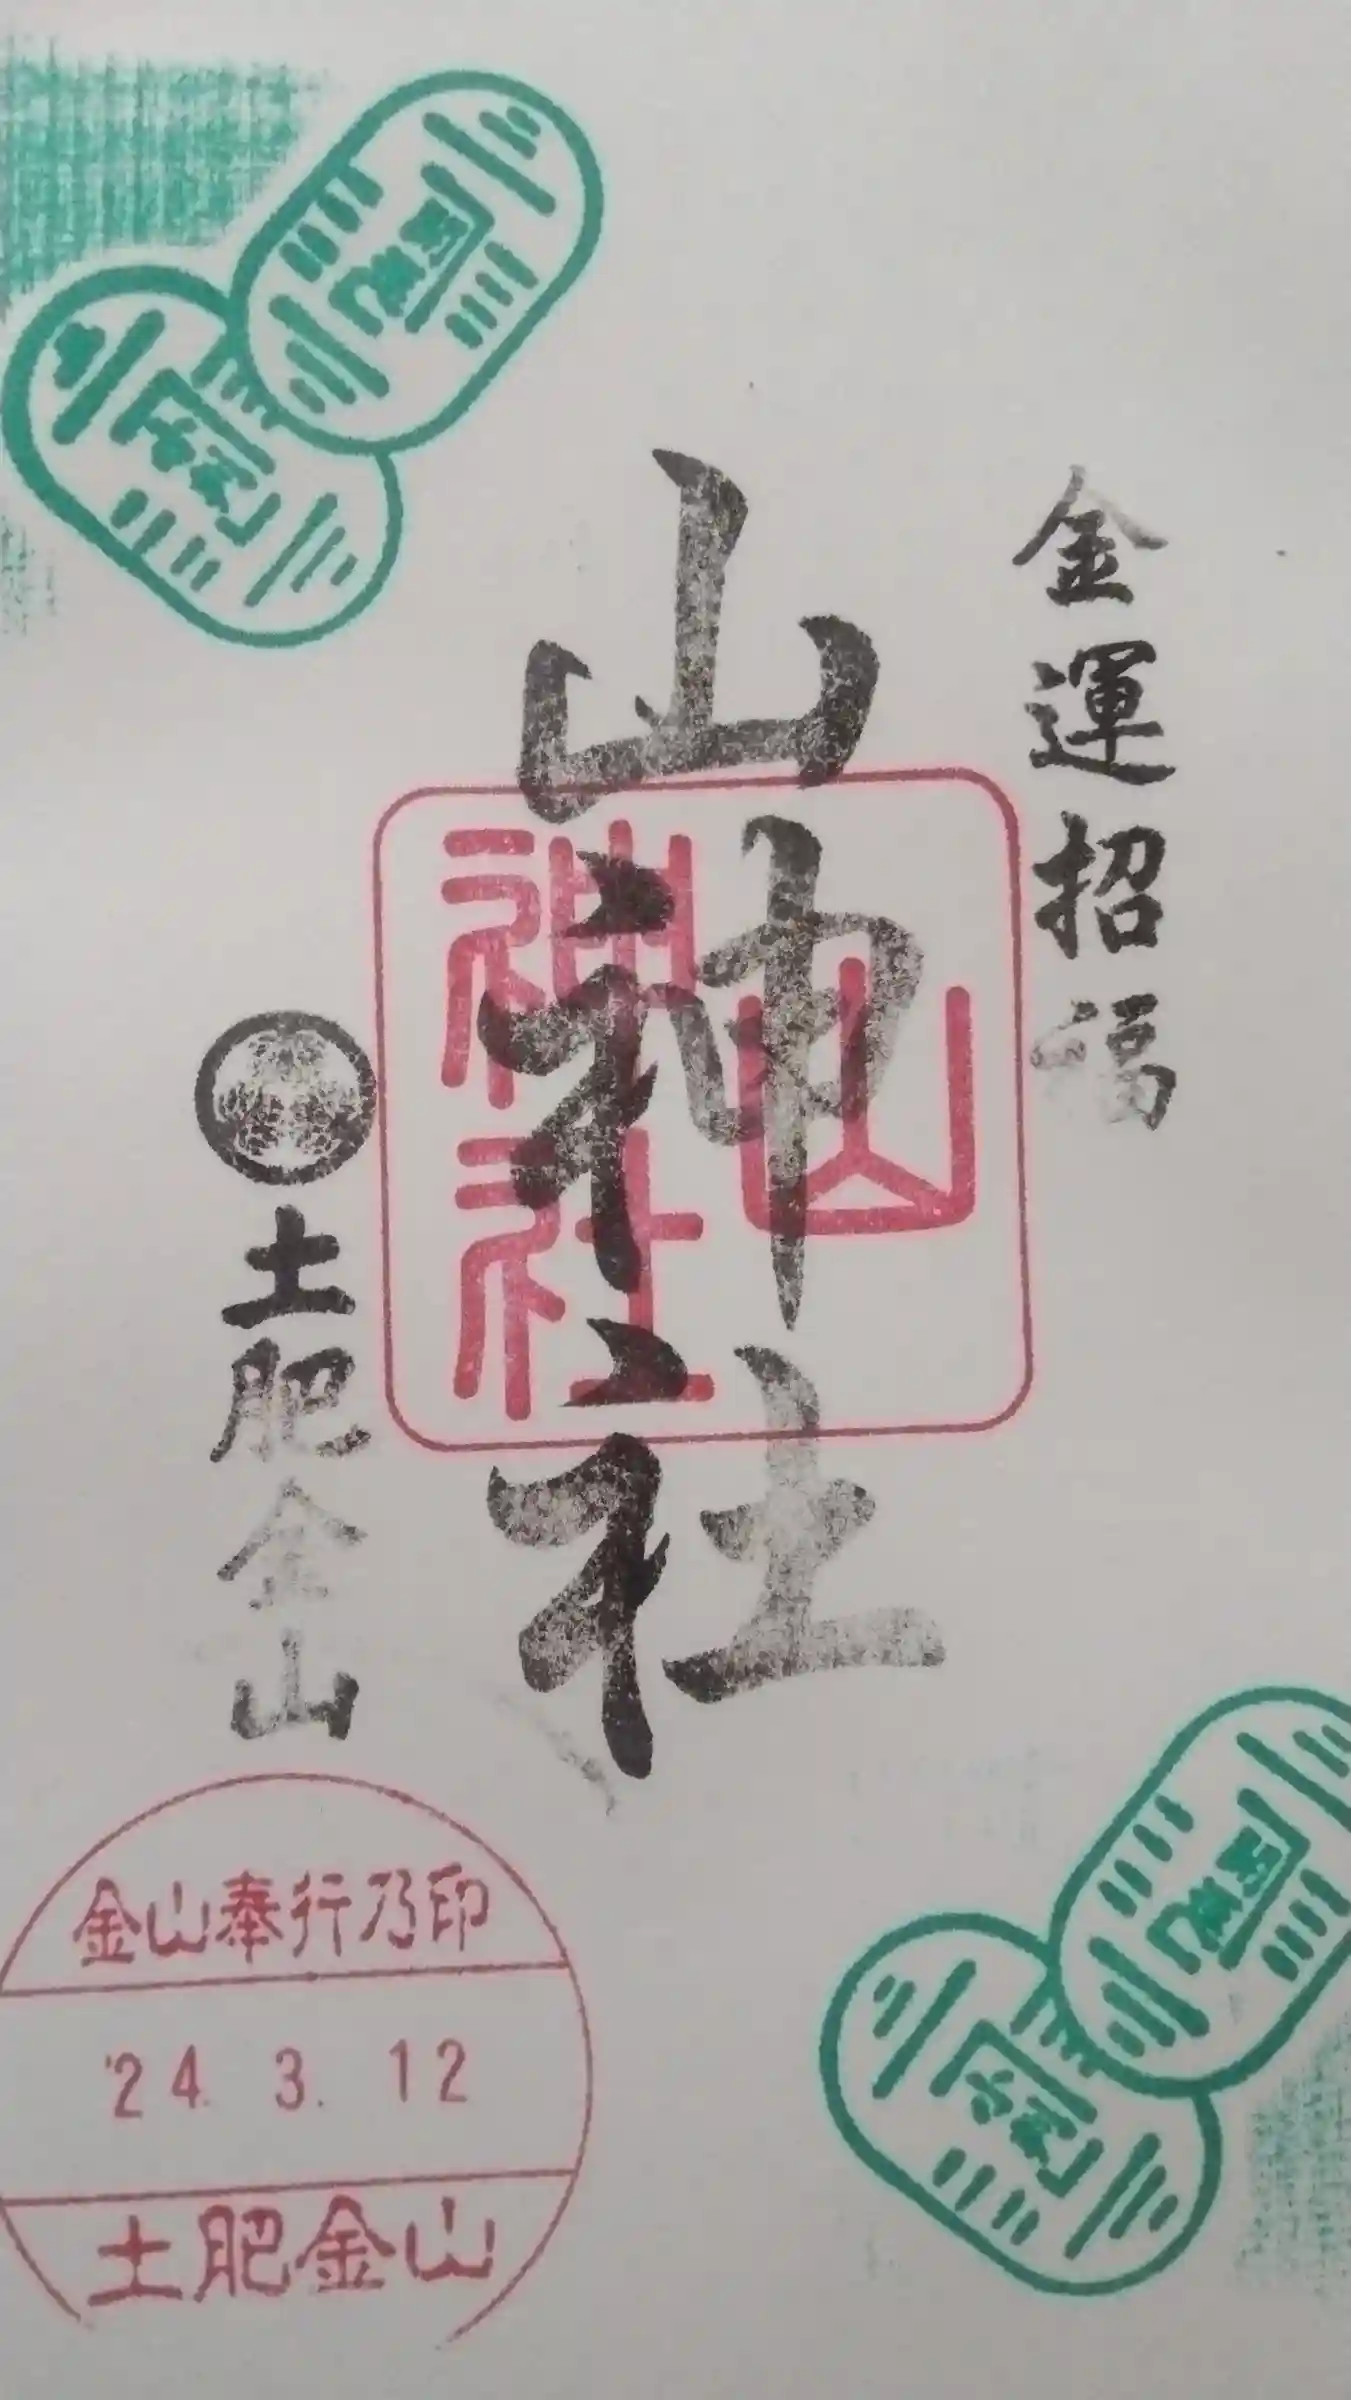 金運招福
山神社
山神社
土肥金山
金山奉行乃印
'24. 3. 12
土肥金山